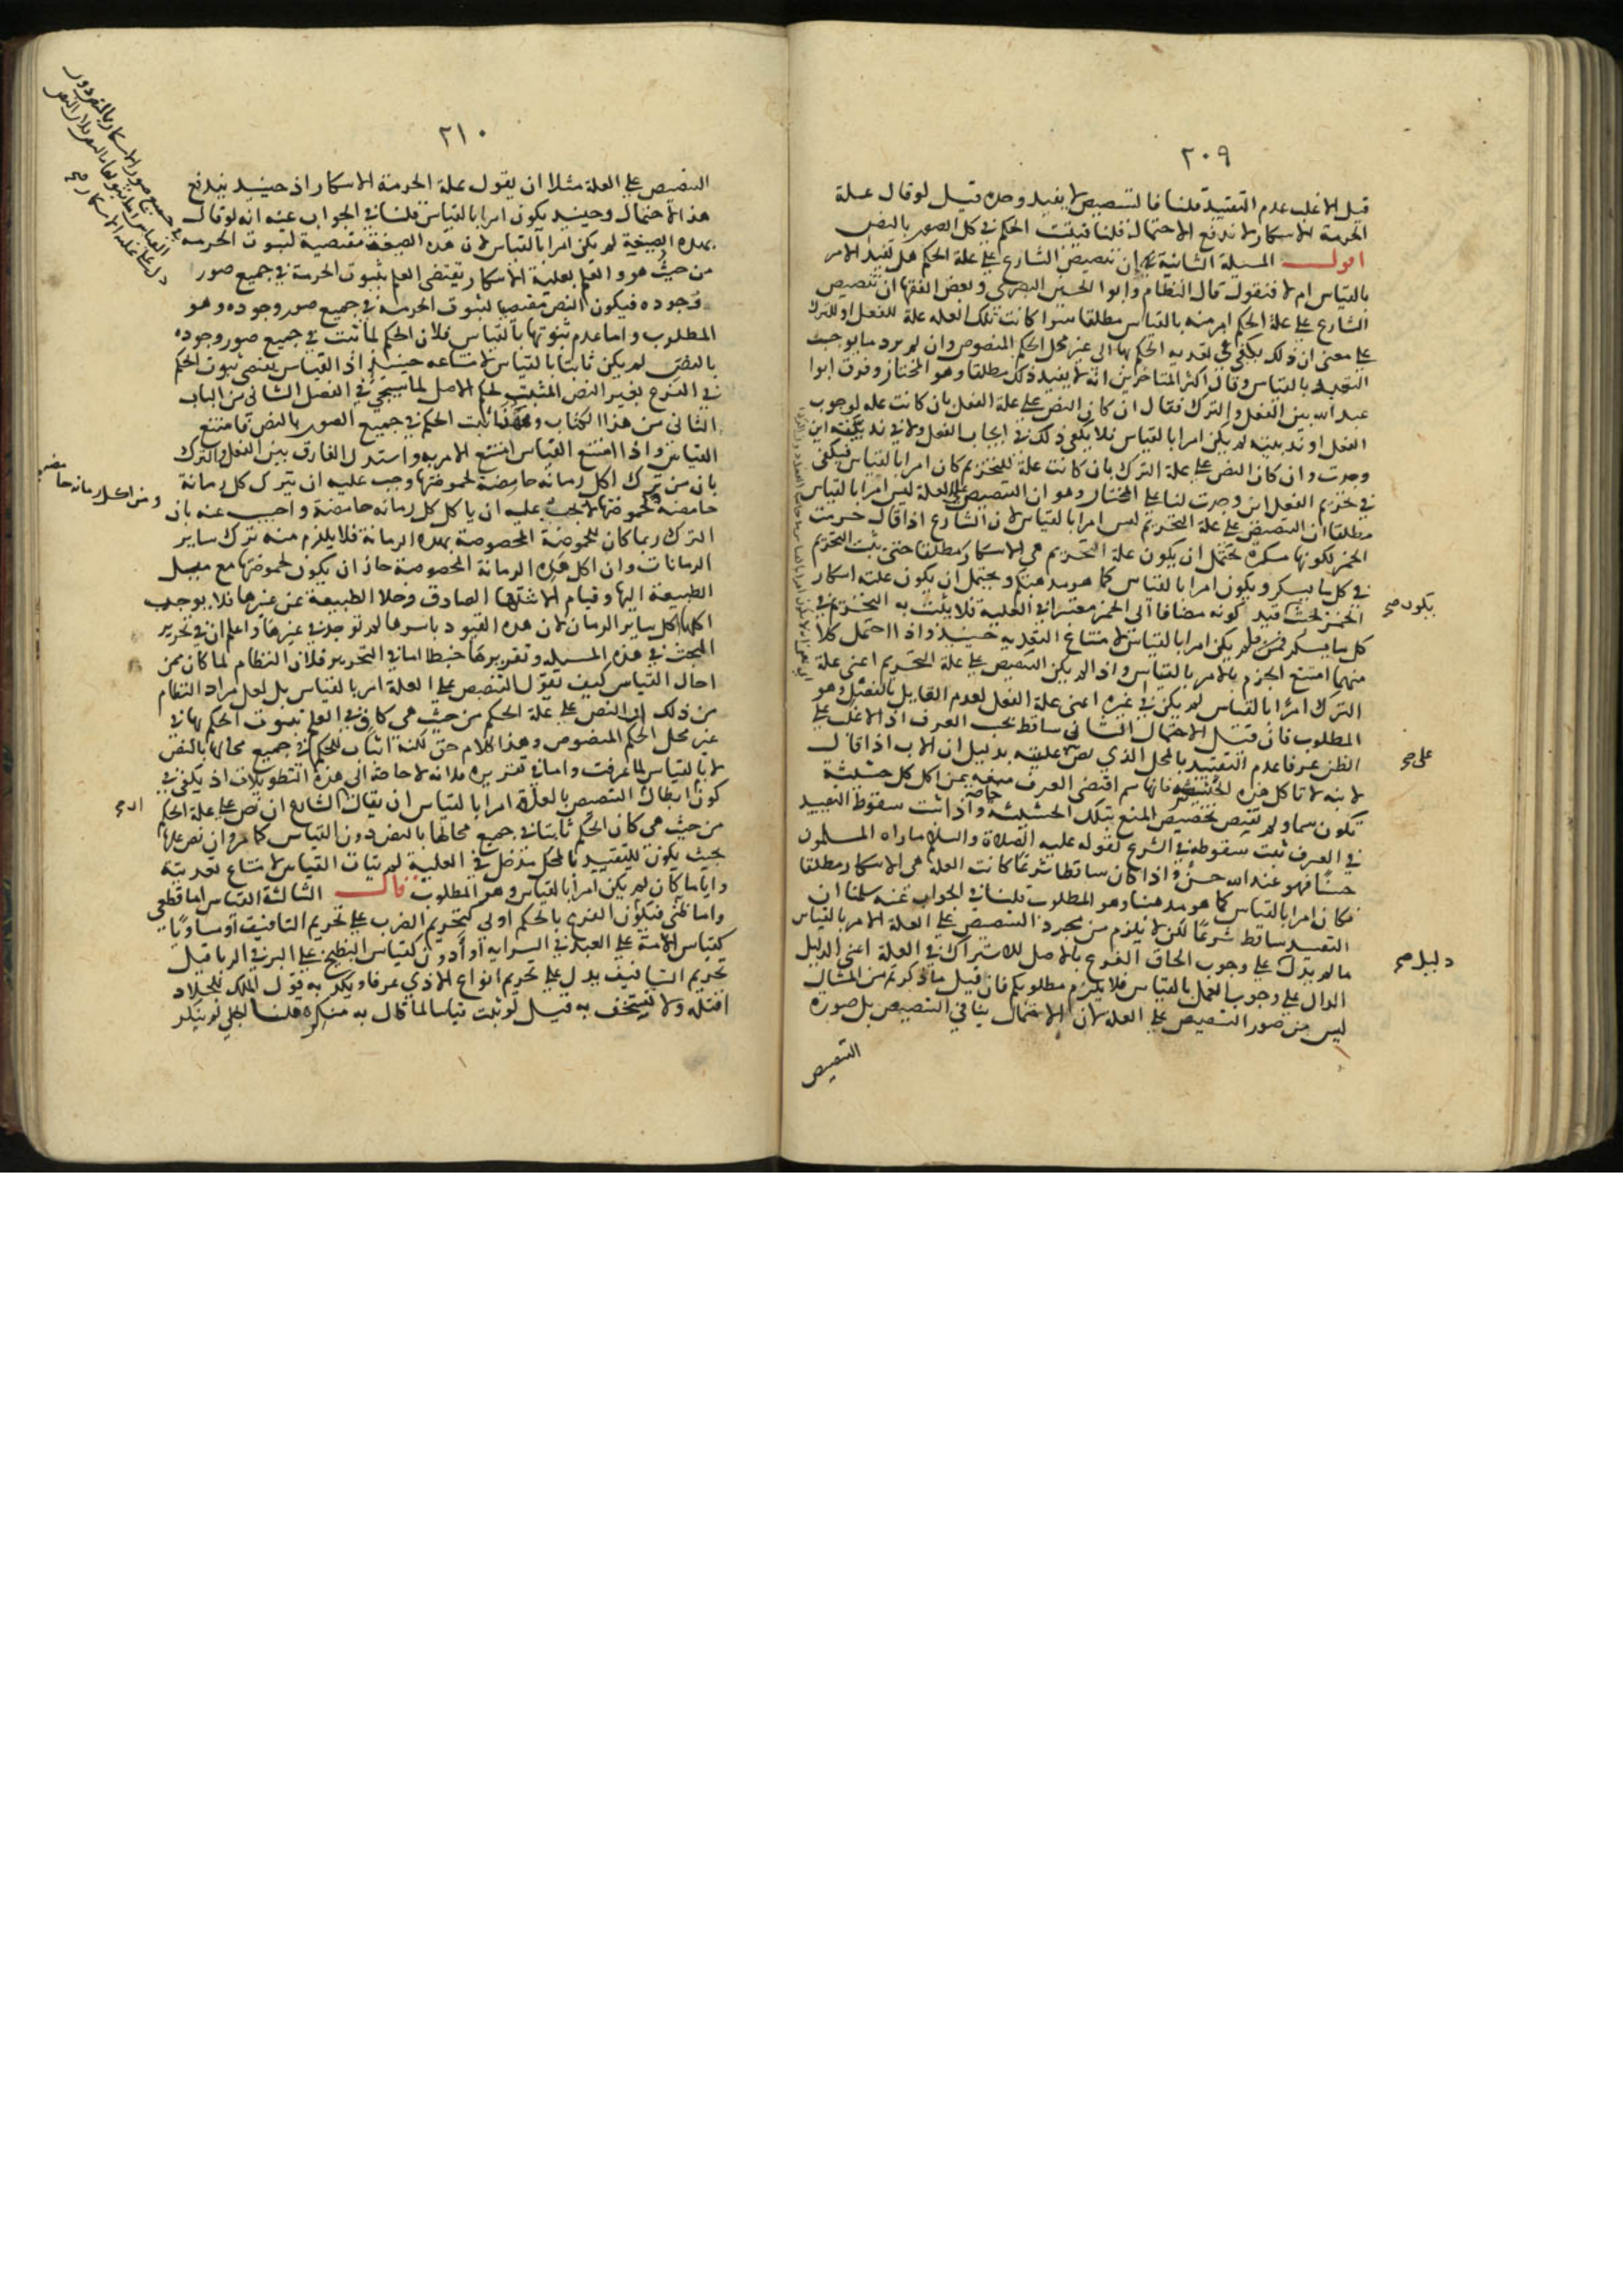 ٢٠٩
قيل الاغلب عدم التقييد قلنا فالتنصيص لا يفيد وحده قيل لو قال علة
الحرمة الاسكار لاندفع الاحتمال قلنا فيثبت الحكم في كل الصور بالنص
اقول المسيلة الثانية في ان تنصيص الشارع على علة الحكم هل تفيد الامر
بالقياس ام لا فنقول قال النظام وابوا الحسين البصري وبعض الفقها ان تنصيص
الشارع على علة الحكم امر منه بالقياس مطلقا سوا كانت تلك العله علة للفعل او للترك
على معنى ان ذلك يكفي في تعديه الحكم بها الى غير محل الحكم المنصوص وان لم يرد ما يوجب
التعبد بالقياس وقال اكثر المتاخرين انه لا يفيد ذلك مطلقا وهو المختار وفرق ابوا
عبد الله بين الفعل والترك فقال ان كان النص على علة الفعل بان كانت عله لوجوب
الفعل او ندبيته لم يكن امرا بالقياس فلا يكفي ذلك في ايجاب الفعل ولا في ندبيته اين
وجدت وان كان النص على علة الترك بان كانت علة للتحريم كان امرا بالقياس فيكفي
في تحريم الفعل اين وجدت لنا على المختار وهو ان التنصيص على العلة ليس امرا بالقياس
مطلقا ان التنصيص على علة التحريم ليس امرا بالقياس لان الشارع اذا قال حرمت
الخمر لكونها مسكره يحتمل ان يكون علة التحريم هي الاسكار مطلقا حتى يثبت التحريم
في كل ما يسكر ويكون امرا بالقياس كما هو مذهبكم ويحتمل ان يكون علته اسكار
الخمر بحيث قيد كونه مضافا الى الخمر معتبرا في العلية فلا يثبت به التحريم في
كل ما يسكر فلم يكن امرا بالقياس لامتناع التعديه حينيذ واذا احتمل كلا
منهما امتنع الجزم بالامر بالقياس واذا لم يكن التنصيص على علة التحريم اعني علة
الترك امرا بالقياس لم يكن في غيره اعني علة الفعل لعدم القايل بالفصل وهو
المطلوب فان قيل الاحتمال الثاني ساقط بحسب العرف اذ الاغلب على
الظن عرفا عدم التقييد بالمحل الذي نص عليه بدليل ان الاب اذا قال
لابنه لا تاكل هذه الحشيشه فانها سم اقتضى العرف منعه من اكل كل حشيشة
تكون سما ولم يقتض تخصيص المنع بتلك الحشيشة واذا ثبت سقوط التقييد
في العرف ثبت سقوطه في الشرع لقوله عليه الصلاة والسلام ماراه المسلمون
حسنا فهو عند الله حسن واذا كان ساقطا شرعا كانت العلة هي الاسكار مطلقا
فكان امرا بالقياس كما هو مذهبنا وهو المطلوب قلنا في الجواب عنه سلمنا ان
التقييد ساقط شرعا لكن لا يلزم من مجرد التنصيص على العلة الامر بالقياس
ما لم يدل على وجوب الحاق الفرع بالاصل للاشتراك في العلة اعني الدليل
الدال على وجوب العمل بالقياس فلا يلزم مطلوبكم فان قيل ما ذكرتم من المثال
ليس من صور التنصيص على العله لان الاحتمال ينافي التنصيص بل صورة
التنصيص
يكون صح
على صح
خاصة
دليل صح
٢١٠
التنصيص على العلة مثلا ان يقول علة الحرمة الاسكار اذ حينيذ يندفع
هذا الاحتمال وحينيذ يكون امرا بالقياس قلنا في الجواب عنه انه لو قال
بهذه الصيغة لم يكن امرا بالقياس لان هذه الصيغة مقتضية لثبوت الحرمه
من حيث هو والعلم بعلية الاسكار يقتضي العلم بثبوت الحرمة في جميع صور
وجوده فيكون النص مقتضيا لثبوت الحرمه في جميع صور وجوده وهو
المطلوب واما عدم ثبوتها بالقياس فلان الحكم لما ثبت في جميع صور وجوده
بالنص لم يكن ثابتا بالقياس لامتناعه حينيذ اذ القياس يقتضي ثبوت الحكم
في الفرع بغير النص المثبت لحكم الاصل لما سيجي في الفصل الثاني من الباب
الثاني من هذا الكتاب وههنا ثبت الحكم في جميع الصور بالنص فامتنع
القياس واذا امتنع القياس امتنع الامر به واستدل الفارق بين الفعل والترك
بان من ترك اكل رمانه حامضة لحموضتها وجب عليه ان يترك كل رمانة
حامضه لحموضتها لا يجب عليه ان ياكل كل رمانه حامضة واجيب عنه بان
الترك ربما كان للحموضة المخصوصة بهذه الرمانة فلا يلزم منه ترك ساير
الرمانات وان اكل هذه الرمانة المخصوصة جاز ان يكون لحموضتها مع ميل
الطبيعة اليها وقيام الاشتها الصادق وخلا الطبيعة عن غيرها فلا يوجب
اكلها اكل ساير الرمان لان هذه القيود باسرها لم توجد في غيرها واعلم ان في تحرير
البحث في هذه المسيله وتقريرها خبطا اما في التحرير فلان النظام لما كان ممن
احال القياس كيف يقول التنصيص على العلة امر بالقياس بل لعل مراد النظام
من ذلك ان النص على علة الحكم من حيث هي كاف في العلم بثبوت الحكم بها في
غير محل الحكم المنصوص وهذا كلام حق لكنه اثبات للحكم في جميع محالها بالنص
لا بالقياس لما عرفت واما في تقريره فلانه لا حاجة الى هذه التطويلات اذ يكفي في
كون ابطال التنصيص بالعلة امرا بالقياس ان يقال الشارع ان نص على علة الحكم
من حيث هي كان الحكم ثابتا في جميع محالها بالنص دون القياس كما مر وان نص عليها
بحيث يكون للتقييد بالمحل مدخل في العلية لم يتات القياس لامتناع تعديته
وايا ما كان لم يكن امرا بالقياس وهو المطلوب قال الثالثة القياس اما قطعي
واما ظني فيكون الفرع بالحكم اولى كتحريم الضرب على تحريم التافيف او مساويا
كقياس الامة على العبد في السراية او ادون كقياس البطيخ على البر في الربا قيل
تحريم التافيف يدل على تحريم انواع الاذي عرفا ويكذبه قول الملك للجلاد
اقتله ولا تستخف به قيل لو ثبت قياسا لما قال به منكره قلنا الجلي لم ينكر
ومن اكل رمانه حامضه